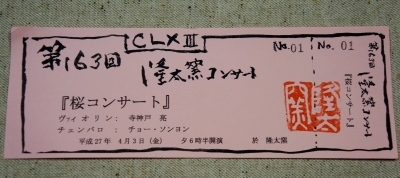 第163回
CLXIII
隆太窯コンサート
No.01
No. 01
『桜コンサート』
ヴァイオリン: 寺神戸 亮
チェンバロ: チョー・ソンヨン
平成27年 4月3日(金) 夕6時半開演 於 隆太窯
隆太窯
第163回
隆太窯コンサート
『桜コンサート』